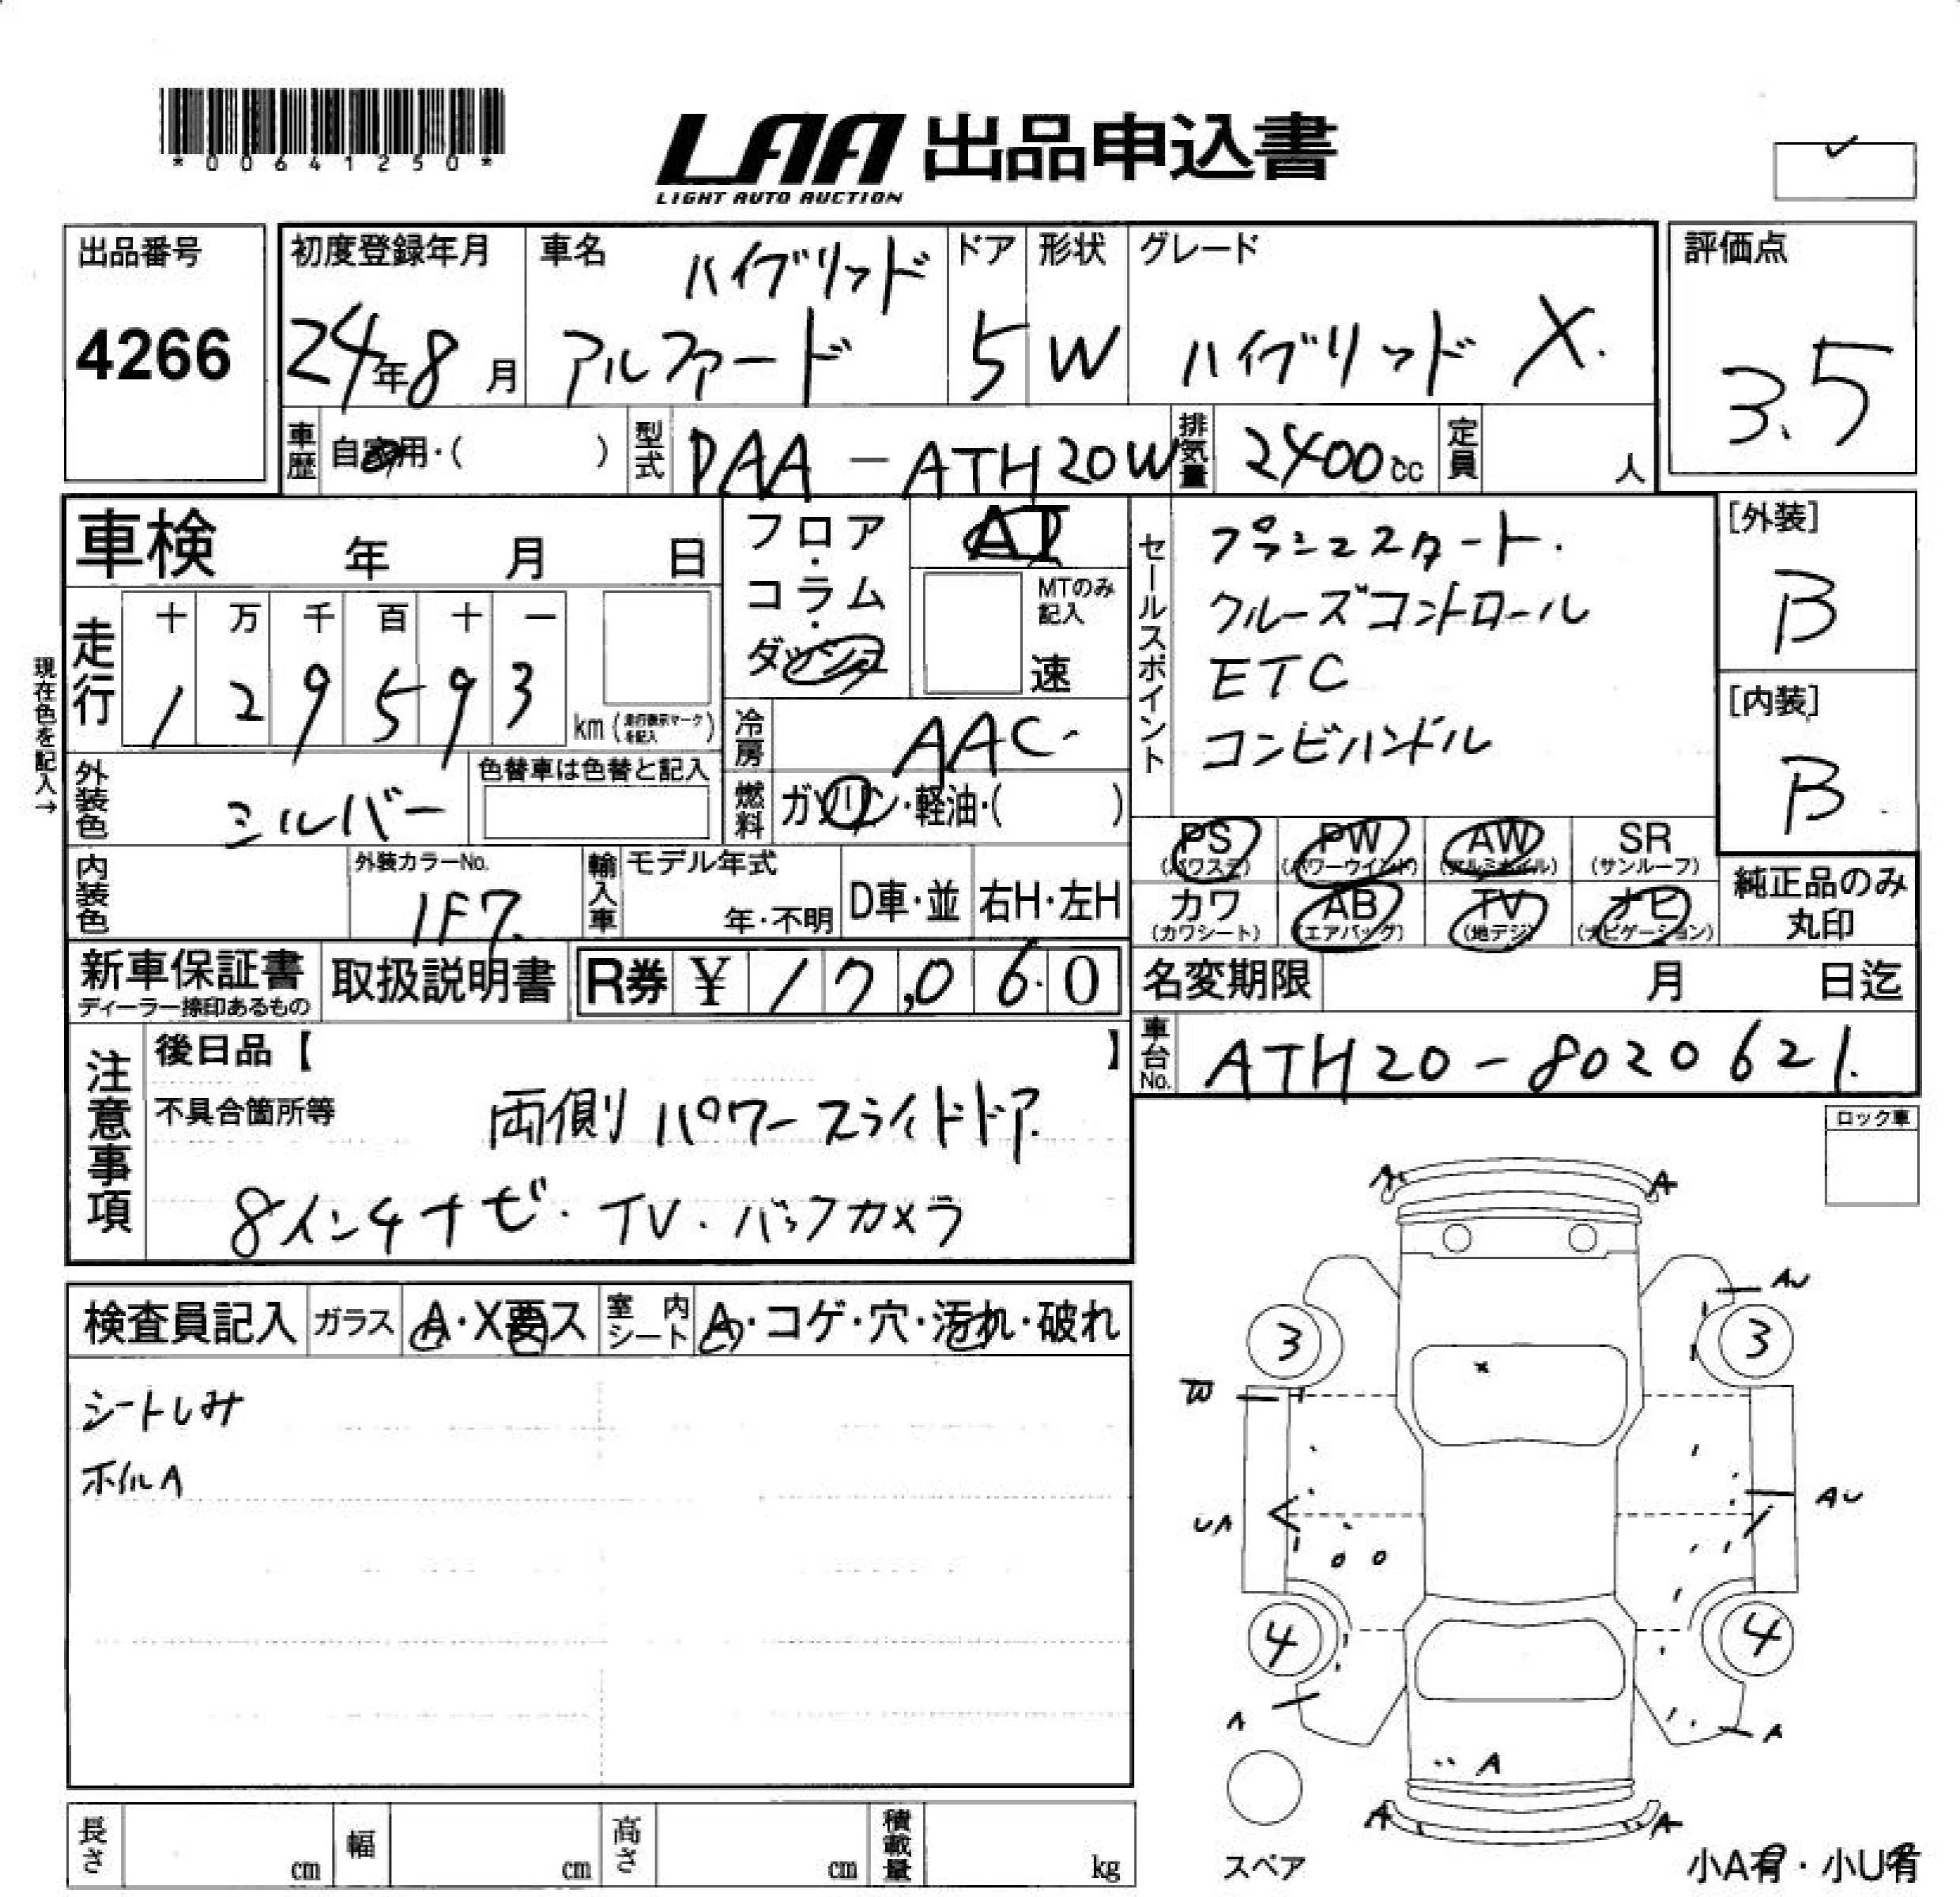 *00641250*
LAA 出品申込書
LIGHT AUTO AUCTION
出品番号
4266
初度登録年月
24年8月
車名
ハイブリッド
アルファード
ドア
5
形状
W
グレード
ハイブリッド X.
評価点
3.5
車歴
自家用・( )
型式
DAA-ATH20W
排気量
2400cc
定員
人
車検 年 月 日
フロア・コラム・ダッシュ
AT
MTのみ記入
速
セールスポイント
プッシュスタート.
クルーズコントロール
ETC
コンビハンドル
[外装]
B
[内装]
B
現在色を記入→
走行
十 万 千 百 十 一
1 2 9 5 9 3
km (走行表示マークを記入)
冷房
AAC
外装色
シルバー
色替車は色替と記入
燃料
ガソリン・軽油・( )
内装色
外装カラーNo.
1F7.
輸入車
モデル年式
年・不明
D車・並
右H・左H
PS
(パワステ)
PW
(パワーウインド)
AW
(アルミホイル)
SR
(サンルーフ)
カワ
(カワシート)
AB
(エアバッグ)
TV
(地デジ)
ナビ
(ナビゲーション)
純正品のみ
丸印
新車保証書
ディーラー捺印あるもの
取扱説明書
R券 ¥ 17,060
名変期限 月 日迄
車台No.
ATH20-8020621.
注意事項
後日品【 】
不具合箇所等
両側パワースライドドア.
8インチナビ・TV・バックカメラ
ロック車
検査員記入
ガラス
A・X要ス
室内シート
A・コゲ・穴・汚れ・破れ
シートしみ
ホイルA
A A
AU
3 3
W
AU
UA
4 4
A
A
A
A A
スペア
小A有・小U有
長さ cm
幅 cm
高さ cm
積載量 kg